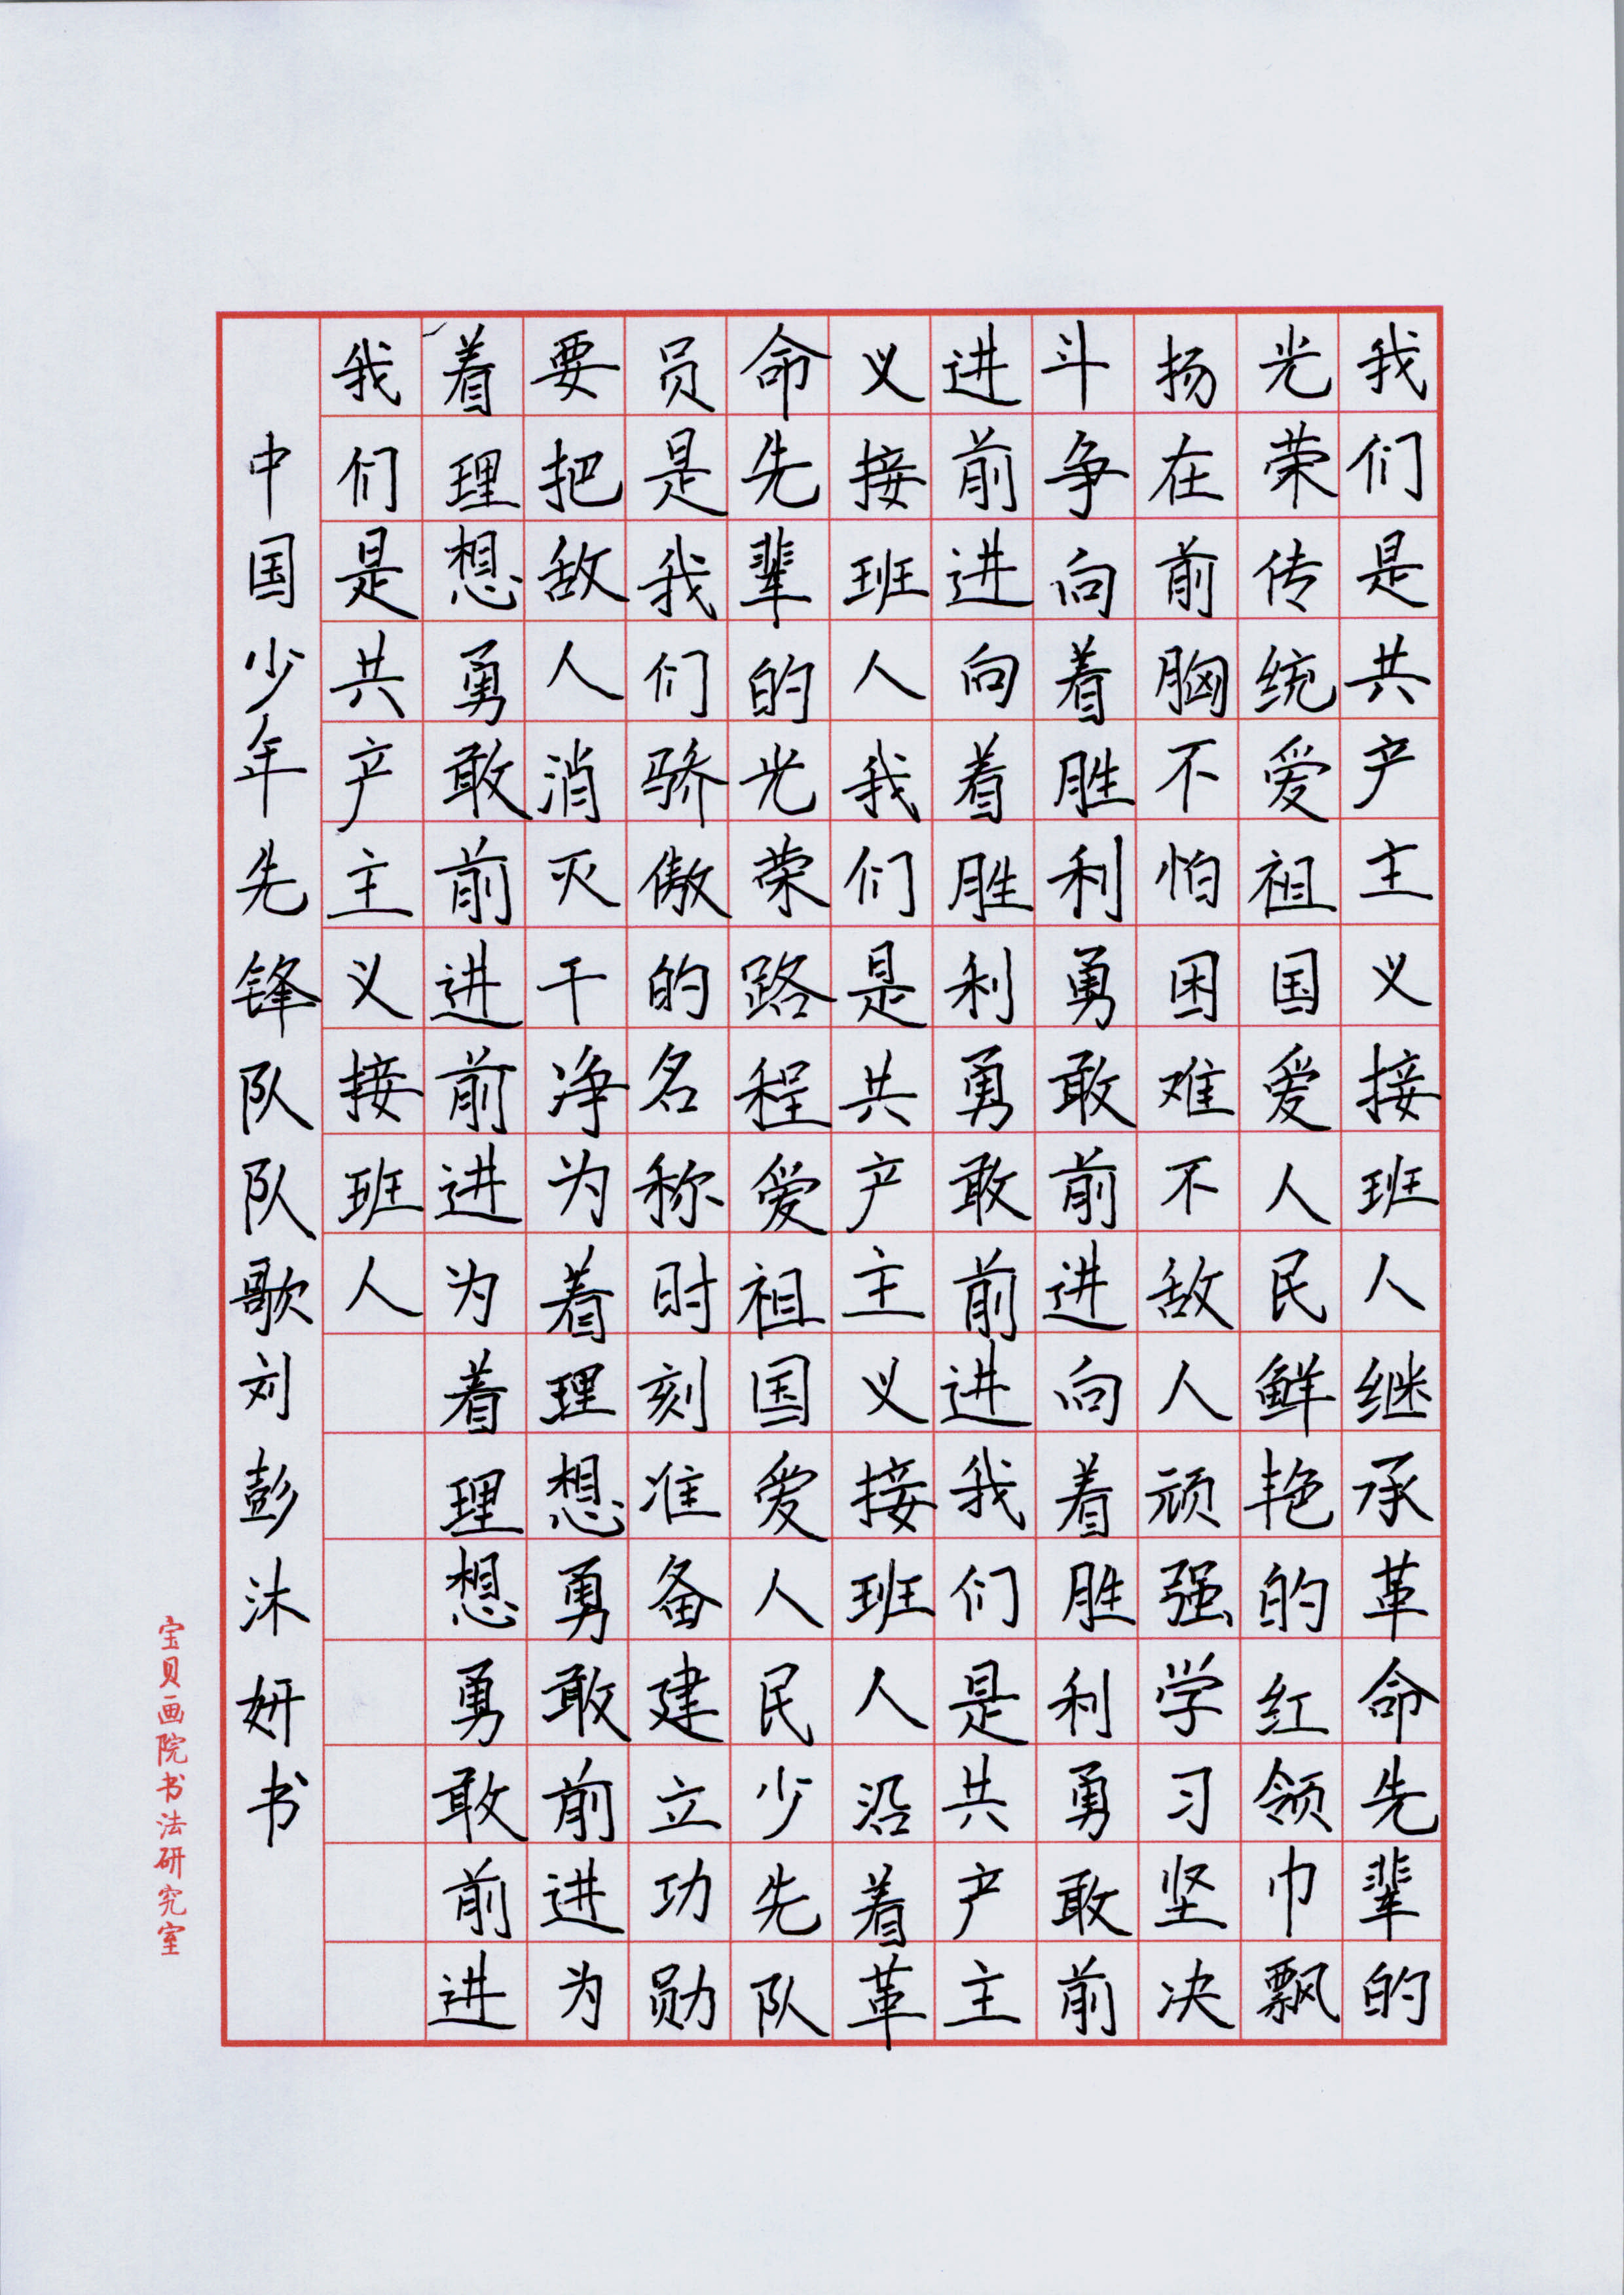 我们是共产主义接班人继承革命先辈的
光荣传统爱祖国爱人民鲜艳的红领巾飘
扬在前胸不怕困难不敌人顽强学习坚决
斗争向着胜利勇敢前进向着胜利勇敢前
进前进向着胜利勇敢前进我们是共产主
义接班人我们是共产主义接班人沿着革
命先辈的光荣路程爱祖国爱人民少先队
员是我们骄傲的名称时刻准备建立功勋
要把敌人消灭干净为着理想勇敢前进为
着理想勇敢前进前进为着理想勇敢前进
我们是共产主义接班人
中国少年先锋队队歌刘彭沐妍书
宝贝画院书法研究室